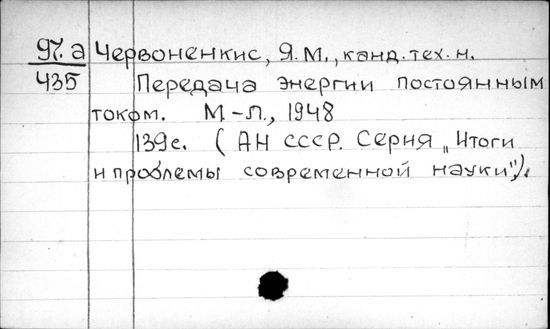 97.а Червоненкис, Я.М., канд.тех.н.
435 Передача энергии постоянным
током. М-Л., 1948
139с. (АН СССР. Серия „Итоги
и проблемы современной науки").